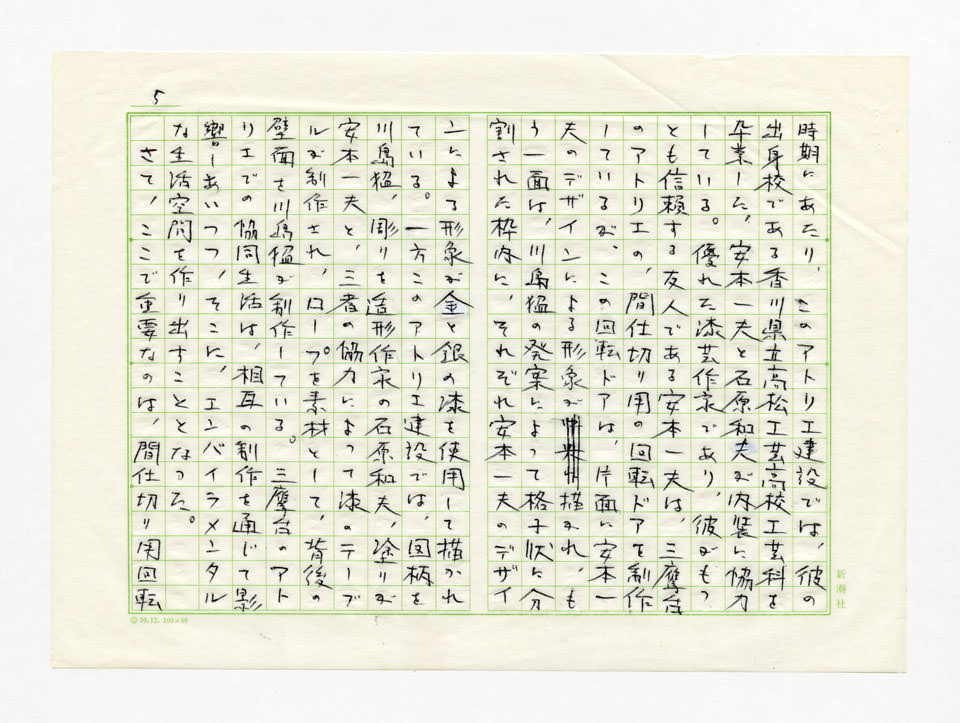 5
時期にあたり、このアトリエ建設では、彼の
出身校である香川県立高松工芸高校工芸科を
卒業した、安本一夫と石原和夫が内装に協力
している。優れた漆芸作家であり、彼がもっ
とも信頼する友人である安本一夫は、三鷹台
のアトリエの、間仕切り用の回転ドアを制作
しているが、この回転ドアは、片面に安本一
夫のデザインによる形象が描かれ、も
う一面は、川島猛の発案によって格子状に分
割された枠内に、それぞれ安本一夫のデザイ
ンによる形象が金と銀の漆を使用して描かれ
ている。一方このアトリエ建設では、図柄を
川島猛、彫りを造形作家の石原和夫、塗りが
安本一夫と、三者の協力によって漆のテーブ
ルが制作され、ロープを素材として、背後の
壁面を川島猛が創作している。三鷹台のアト
リエでの協同生活は、相互の制作を通じて影
響しあいつつ、そこに、エンバイラメンタル
な生活空間を作り出すこととなった。
さて、ここで重要なのは、間仕切り用回転
新潮社